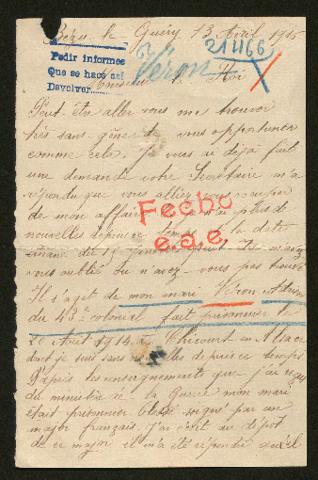 Bezu le Guéry 13 Avril 1915
Pedir informes
Que se hace así
Devolver
Véron
214166
Monsieur le Roi
Peut être allez vous me trouver
très sans gêne de vous opportuner
comme cela. Je vous ai déjà fait
une demande votre Secrétaire m'a
répondu que vous alliez vous occuper
de mon affaire
plus de
nouvelles depuis ce temps
la date
du 17
vous oublié ou n'avez-vous pas trouvé
Fecho
e.a.e.
Il s'agit de mon mari Véron Adrien
du 43e colonial fait prisonnier le
20 Août 1914 à Thicourt en Alsace
dont je suis sans nouvelles depuis ce temps
D'après les renseignements que j'ai reçus
du ministère de la Guerre mon mari
était prisonnier blessé soigné par un
major français. J'ai écrit au dépôt
de ce major il m'a été répondu qu'il